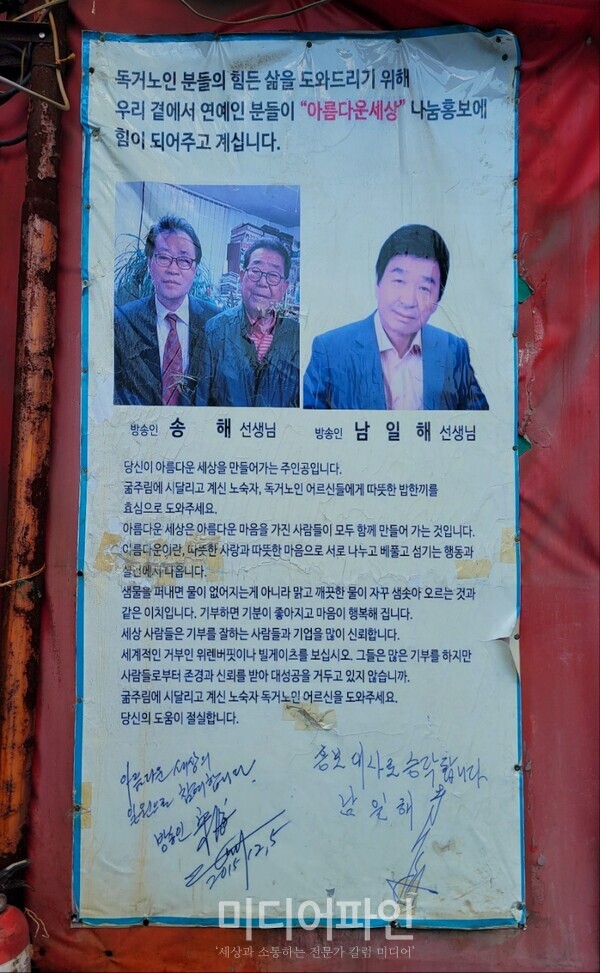 독거노인 분들의 힘든 삶을 도와드리기 위해
우리 곁에서 연예인 분들이 “아름다운세상” 나눔홍보에
힘이 되어주고 계십니다.
방송인 송 해 선생님 방송인 남 일 해 선생님
당신이 아름다운 세상을 만들어가는 주인공입니다.
굶주림에 시달리고 계신 노숙자, 독거노인 어르신들에게 따뜻한 밥한끼를
효심으로 도와주세요.
아름다운 세상은 아름다운 마음을 가진 사람들이 모두 함께 만들어 가는 것입니다.
아름다운이란, 따뜻한 사랑과 따뜻한 마음으로 서로 나누고 베풀고 섬기는 행동과
실천에서 나옵니다.
샘물을 퍼내면 물이 없어지는게 아니라 맑고 깨끗한 물이 자꾸 샘솟아 오르는 것과
같은 이치입니다. 기부하면 기분이 좋아지고 마음이 행복해 집니다.
세상 사람들은 기부를 잘하는 사람들과 기업을 많이 신뢰합니다.
세계적인 거부인 위렌버핏이나 빌게이츠를 보십시오. 그들은 많은 기부를 하지만
사람들로부터 존경과 신뢰를 받아 대성공을 거두고 있지 않습니까.
굶주림에 시달리고 계신 노숙자 독거노인 어르신을 도와주세요.
당신의 도움이 절실합니다.
아름다운 세상의
일원으로 참여합니다.
방송인
2015.12.5
홍보대사로 승락합니다
남일해
미디어파인
‘세상과 소통하는 전문가 칼럼 미디어’